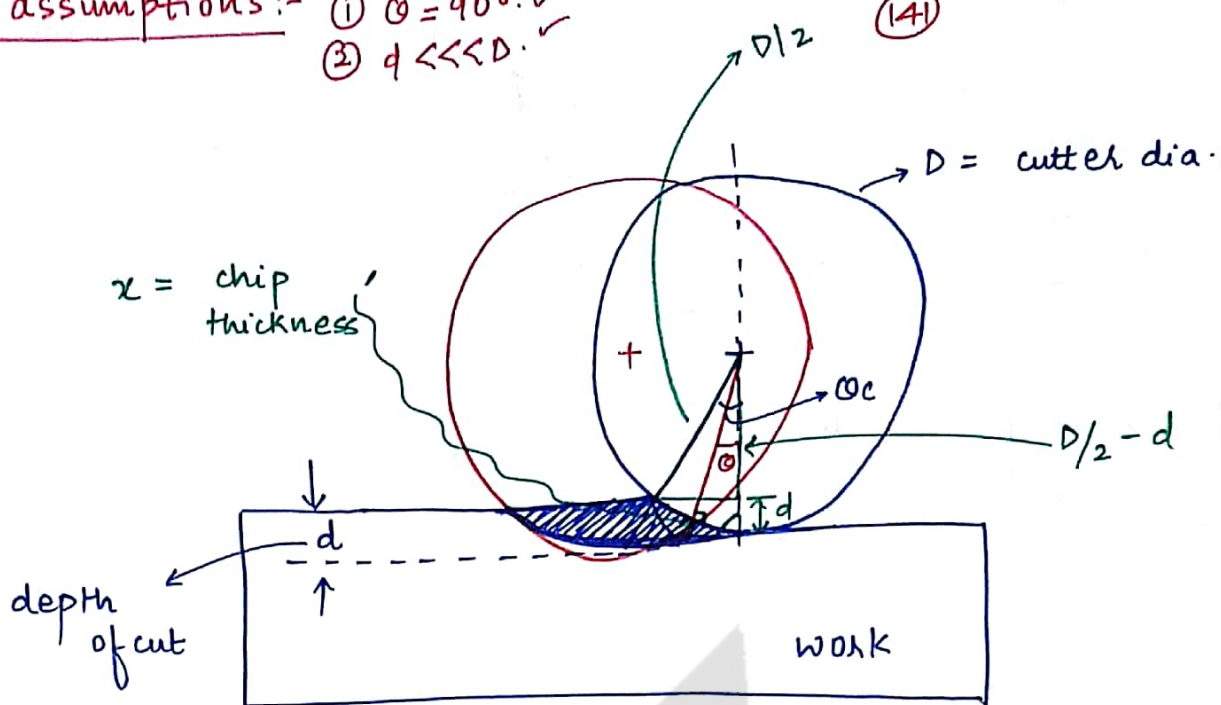 assumptions:- ① θ = 90°. ✓
② d <<< D. ✓
(141)
D/2
D = cutter dia.
x = chip thickness
θc
D/2 - d
θ
d
d
depth of cut
work